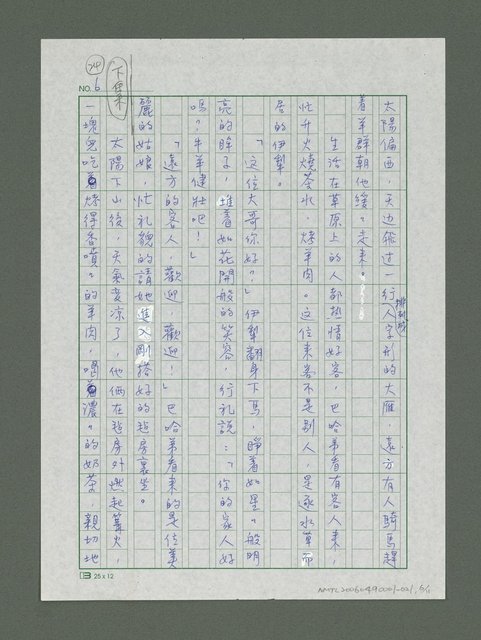 24
NO. 6
下集
太陽偏西，天边飛过一行排列成人字形的大雁，遠方有人騎馬趕
着羊群朝他緩々走來。
生活在草原上的人都热情好客，巴哈弟看有客人來，
忙升火燒茶水，烤羊肉。这位來客不是别人，是逐水草而
居的伊犁。
「这位大哥你好？」伊犁翻身下馬，睜着如星々般明
亮的眸子，堆着如花開般的笑容，行礼說：「你的家人好
嗎？牛羊健壮吧！」
「遠方的客人，歡迎，歡迎！」巴哈弟看來的是位美
麗的姑娘，忙礼貌的請她進入剛搭好的毡房裏坐。
太陽下山後，天氣变凉了，他俩在毡房外燃起篝火，
一塊兒吃着烤得香噴々的羊肉，喝着濃々的奶茶，親切地
25 x 12